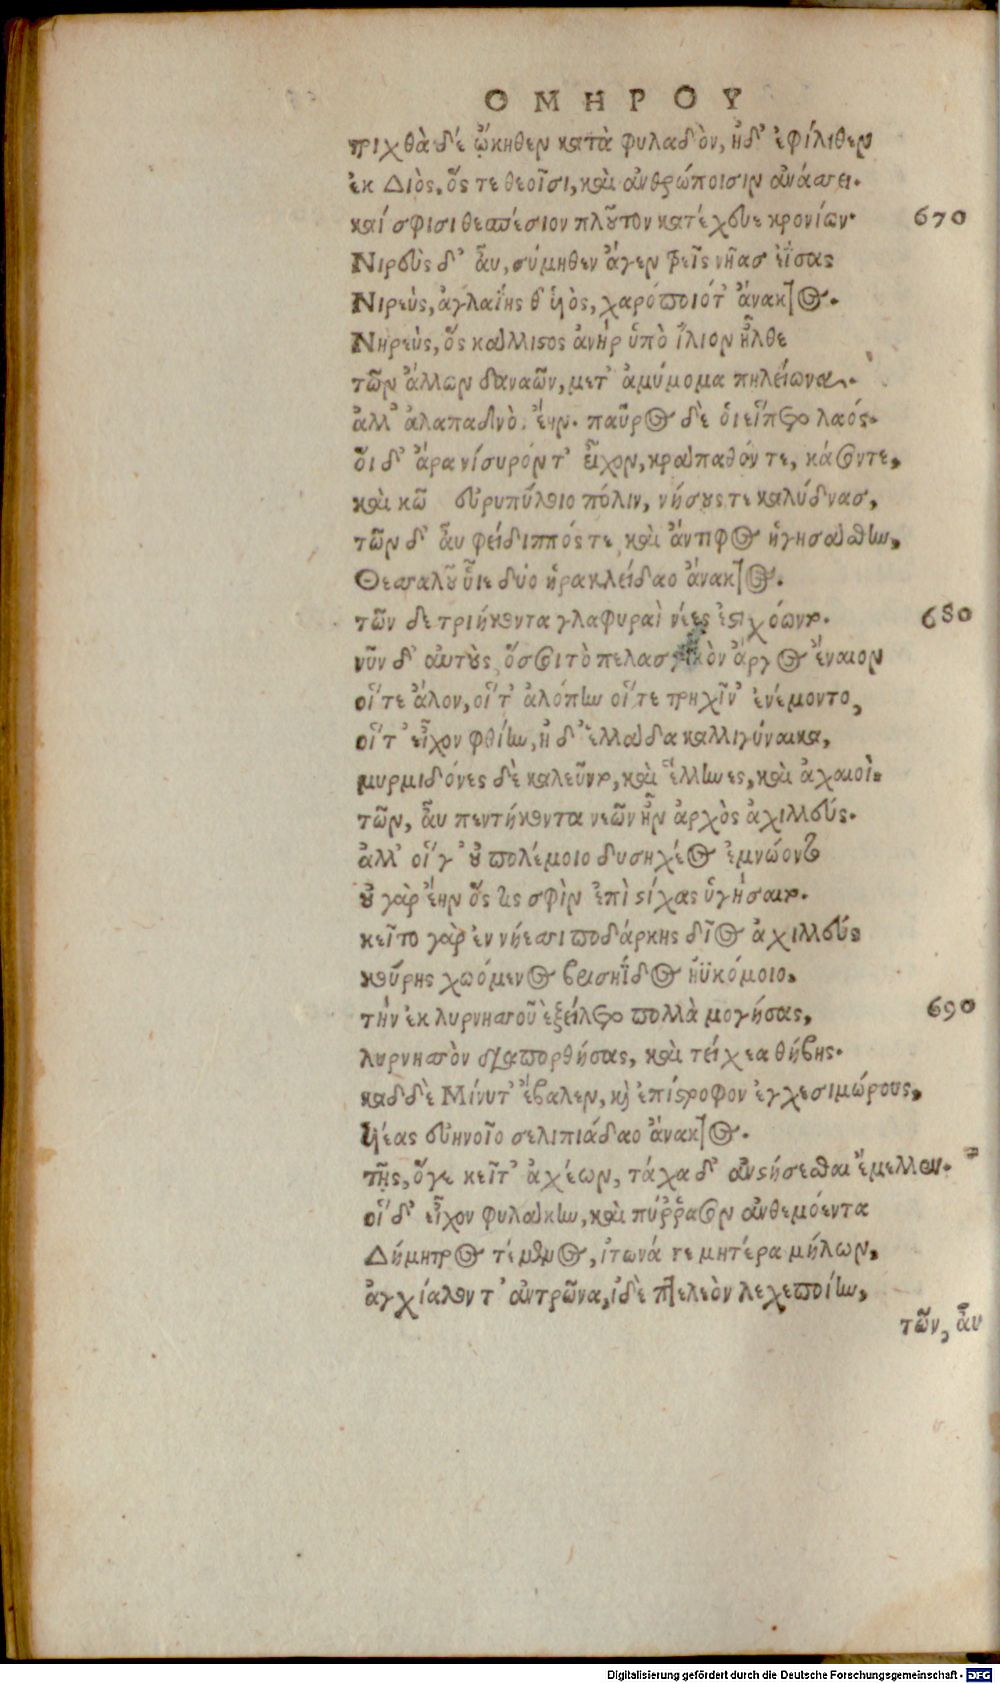 ΟΜΗΡΟΥ
τριχθὰ δέ ᾤκηθεν κατὰ φυλαδὸν, ἠδ' ἐφίληθεν
ἐκ Διὸς, ὅς τε θεοῖσι, καὶ ἀνθρώποισιν ἀνάσσει.
καί σφισι θεσπέσιον πλοῦτον κατέχευε κρονίων· 670
Νιρεὺς δ' αὖ, σύμηθεν ἄγεν τρεῖς νῆας ἐΐσας
Νιρεὺς, ἀγλαΐης θ' ὑιὸς, χαρόποιότ' ἄνακτος.
Νηρεὺς, ὅς κάλλιστος ἀνὴρ ὑπὸ ἴλιον ἦλθε
τῶν ἄλλων δαναῶν, μετ' ἀμύμομα πηλείωνα.
ἀλλ' ἀλαπαδνὸ. ἔην. παῦρος δὲ ὁι εἵπετο λαός.
ὅι δ' ἄρα νίσυρόν τ' εἶχον, κράπαθόν τε, κάσον τε,
καὶ κῶ εὐρυπύλοιο πόλιν, νήσους τε καλύδνας,
τῶν δ' αὖ φείδιππός τε, καὶ ἄντιφος ἡγησάσθην,
Θεσσαλοῦ ὗιε δύο ἡρακλείδαο ἄνακτος.
τῶν δε τριήκοντα γλαφυραὶ νέες ἐστιχόωντο. 680
νῦν δ' αὐτοὺς ὅσσοι τὸ πελασγικὸν ἄργος ἔναιον
οἵ τε ἄλον, οἵ τ' ἀλόπην οἵ τε τρηχῖν' ἐνέμοντο,
οἵ τ' εἶχον φθίην, ἠ δ' ἑλλάδα καλλιγύναικα,
μυρμιδόνες δὲ καλεῦντο, καὶ ἕλληνες, καὶ ἀχαιοὶ.
τῶν, αὖ πεντήκοντα νεῶν ἦν ἀρχὸς ἀχιλλεύς.
ἀλλ' οἵ γ' οὐ πολέμοιο δυσηχέος ἐμνώοντο
οὐ γὰρ ἔην ὅς τις σφὶν ἐπὶ στίχας ὑγήσαιτο.
κεῖτο γὰρ ἐν νήεσσι ποδάρκης δῖος ἀχιλλεύς
κούρης χωόμενος βρισηΐδος ἠϋκόμοιο.
τὴν ἐκ λυρνησσοῦ ἐξείλετο πολλὰ μογήσας, 690
λυρνησσὸν διαπορθήσας, καὶ τείχεα θήβης.
καδδὲ Μίνυτ' ἔβαλεν, καὶ ἐπίστροφον ἐγχεσιμώρους,
ὑιέας εὐηνοῖο σελιπιάδαο ἄνακτος.
τῆς, ὅγε κεῖτ' ἀχέων, τάχα δ' ἀνστήσεσθαι ἔμελλεν.
οἵ δ' εἶχον φυλάκην, καὶ πύῤῥασον ἀνθεμόεντα
Δήμητρος τέμενος, ἰτωνά τε μητέρα μήλων,
ἀγχίαλον τ' ἀντρῶνα, ἰδὲ πτελεὸν λεχεποίην,
τῶν, αὖ
Digitalisierung gefördert durch die Deutsche Forschungsgemeinschaft - DFG